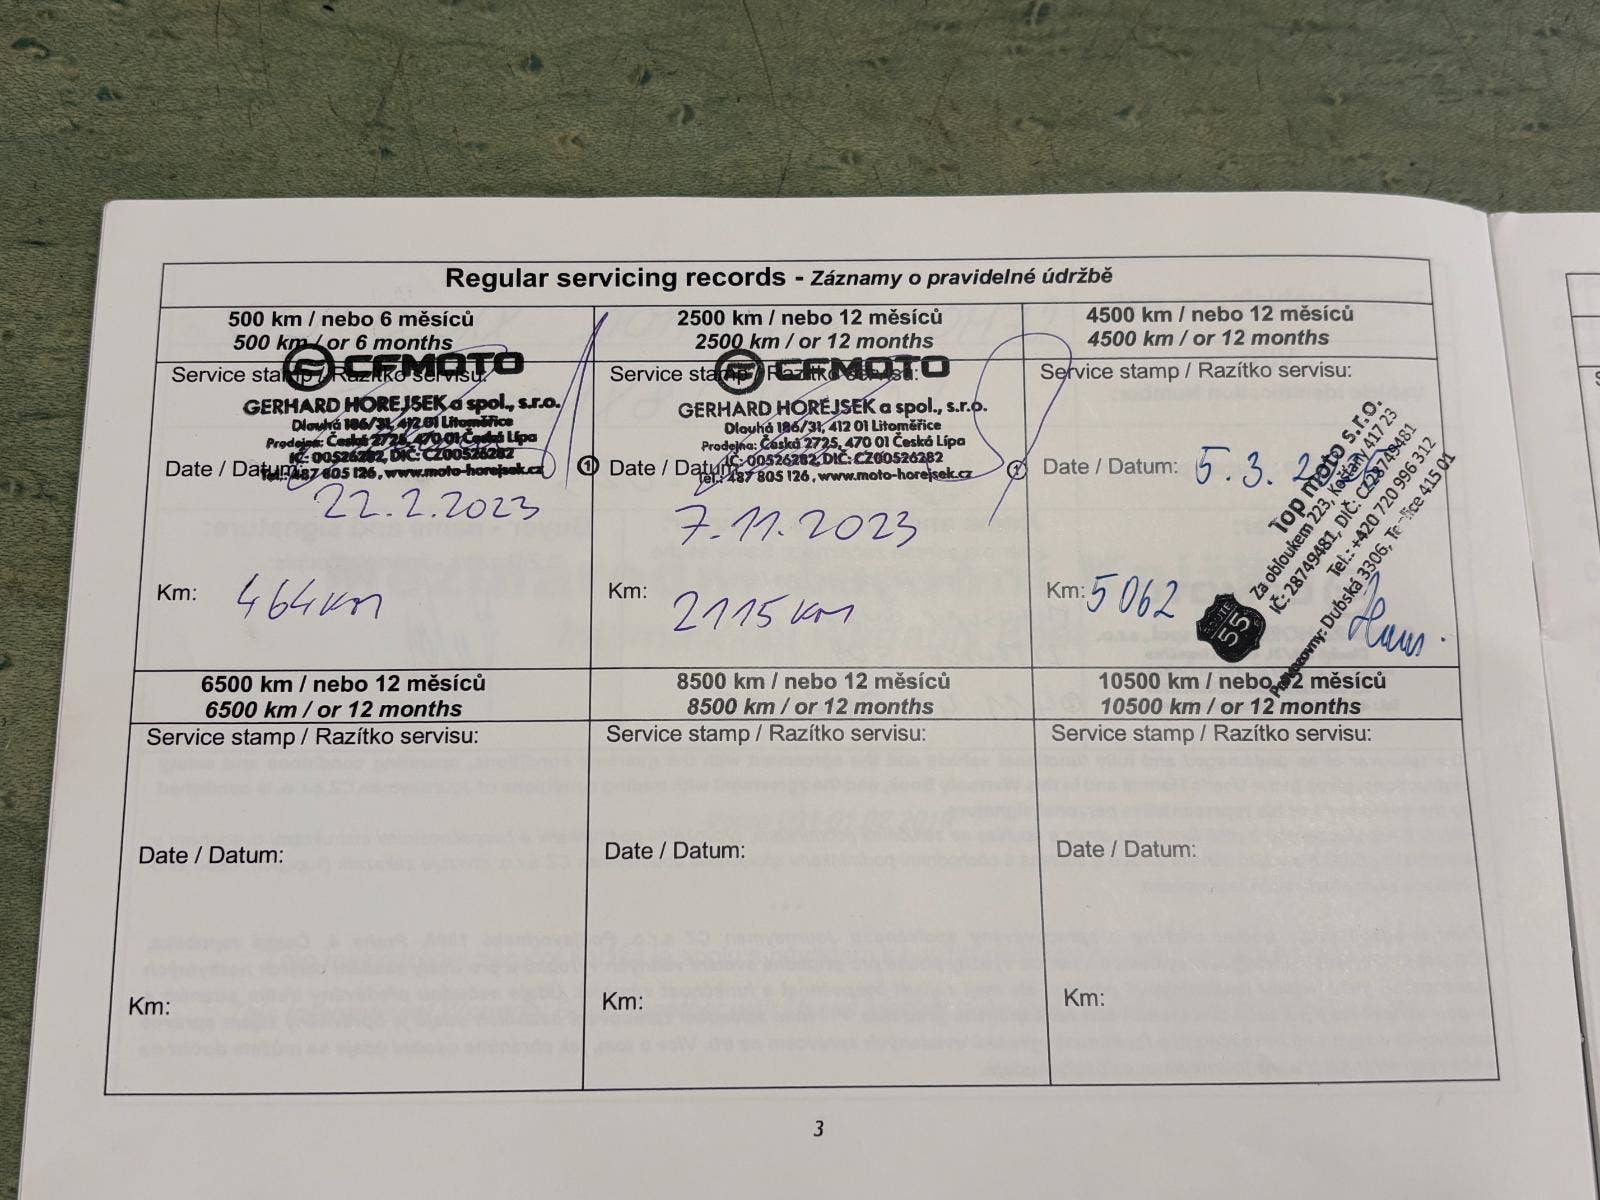 Regular servicing records - Záznamy o pravidelné údržbě
500 km / nebo 6 měsíců
500 km / or 6 months
CFMOTO
Service stamp / Razítko servisu:
GERHARD HOREJSEK a spol., s.r.o.
Dlouhá 186/31, 412 01 Litoměřice
Prodejna: Česká 2725, 470 01 Česká Lípa
IČ: 00526282, DIČ: CZ00526282
Date / Datum:
Tel.: 487 805 126, www.moto-horejsek.cz
1
22.2.2023
Km: 464km
2500 km / nebo 12 měsíců
2500 km / or 12 months
CFMOTO
Service stamp / Razítko servisu:
GERHARD HOREJSEK a spol., s.r.o.
Dlouhá 186/31, 412 01 Litoměřice
Prodejna: Česká 2725, 470 01 Česká Lípa
IČ: 00526282, DIČ: CZ00526282
Date / Datum
Tel.: 487 805 126, www.moto-horejsek.cz
1
7.11.2023
Km: 2115km
4500 km / nebo 12 měsíců
4500 km / or 12 months
Service stamp / Razítko servisu:
Date / Datum: 5.3.
Km: 5062
Top moto s.r.o.
Za obloukem 223, Košťany 417 23
IČ: 28749481, DIČ: CZ28749481
Tel.: +420 720 996 312
Provozovny: Dubská 3306, Teplice 415 01
ROUTE
55
6500 km / nebo 12 měsíců
6500 km / or 12 months
Service stamp / Razítko servisu:
Date / Datum:
Km:
8500 km / nebo 12 měsíců
8500 km / or 12 months
Service stamp / Razítko servisu:
Date / Datum:
Km:
10500 km / nebo 12 měsíců
10500 km / or 12 months
Service stamp / Razítko servisu:
Date / Datum:
Km:
3